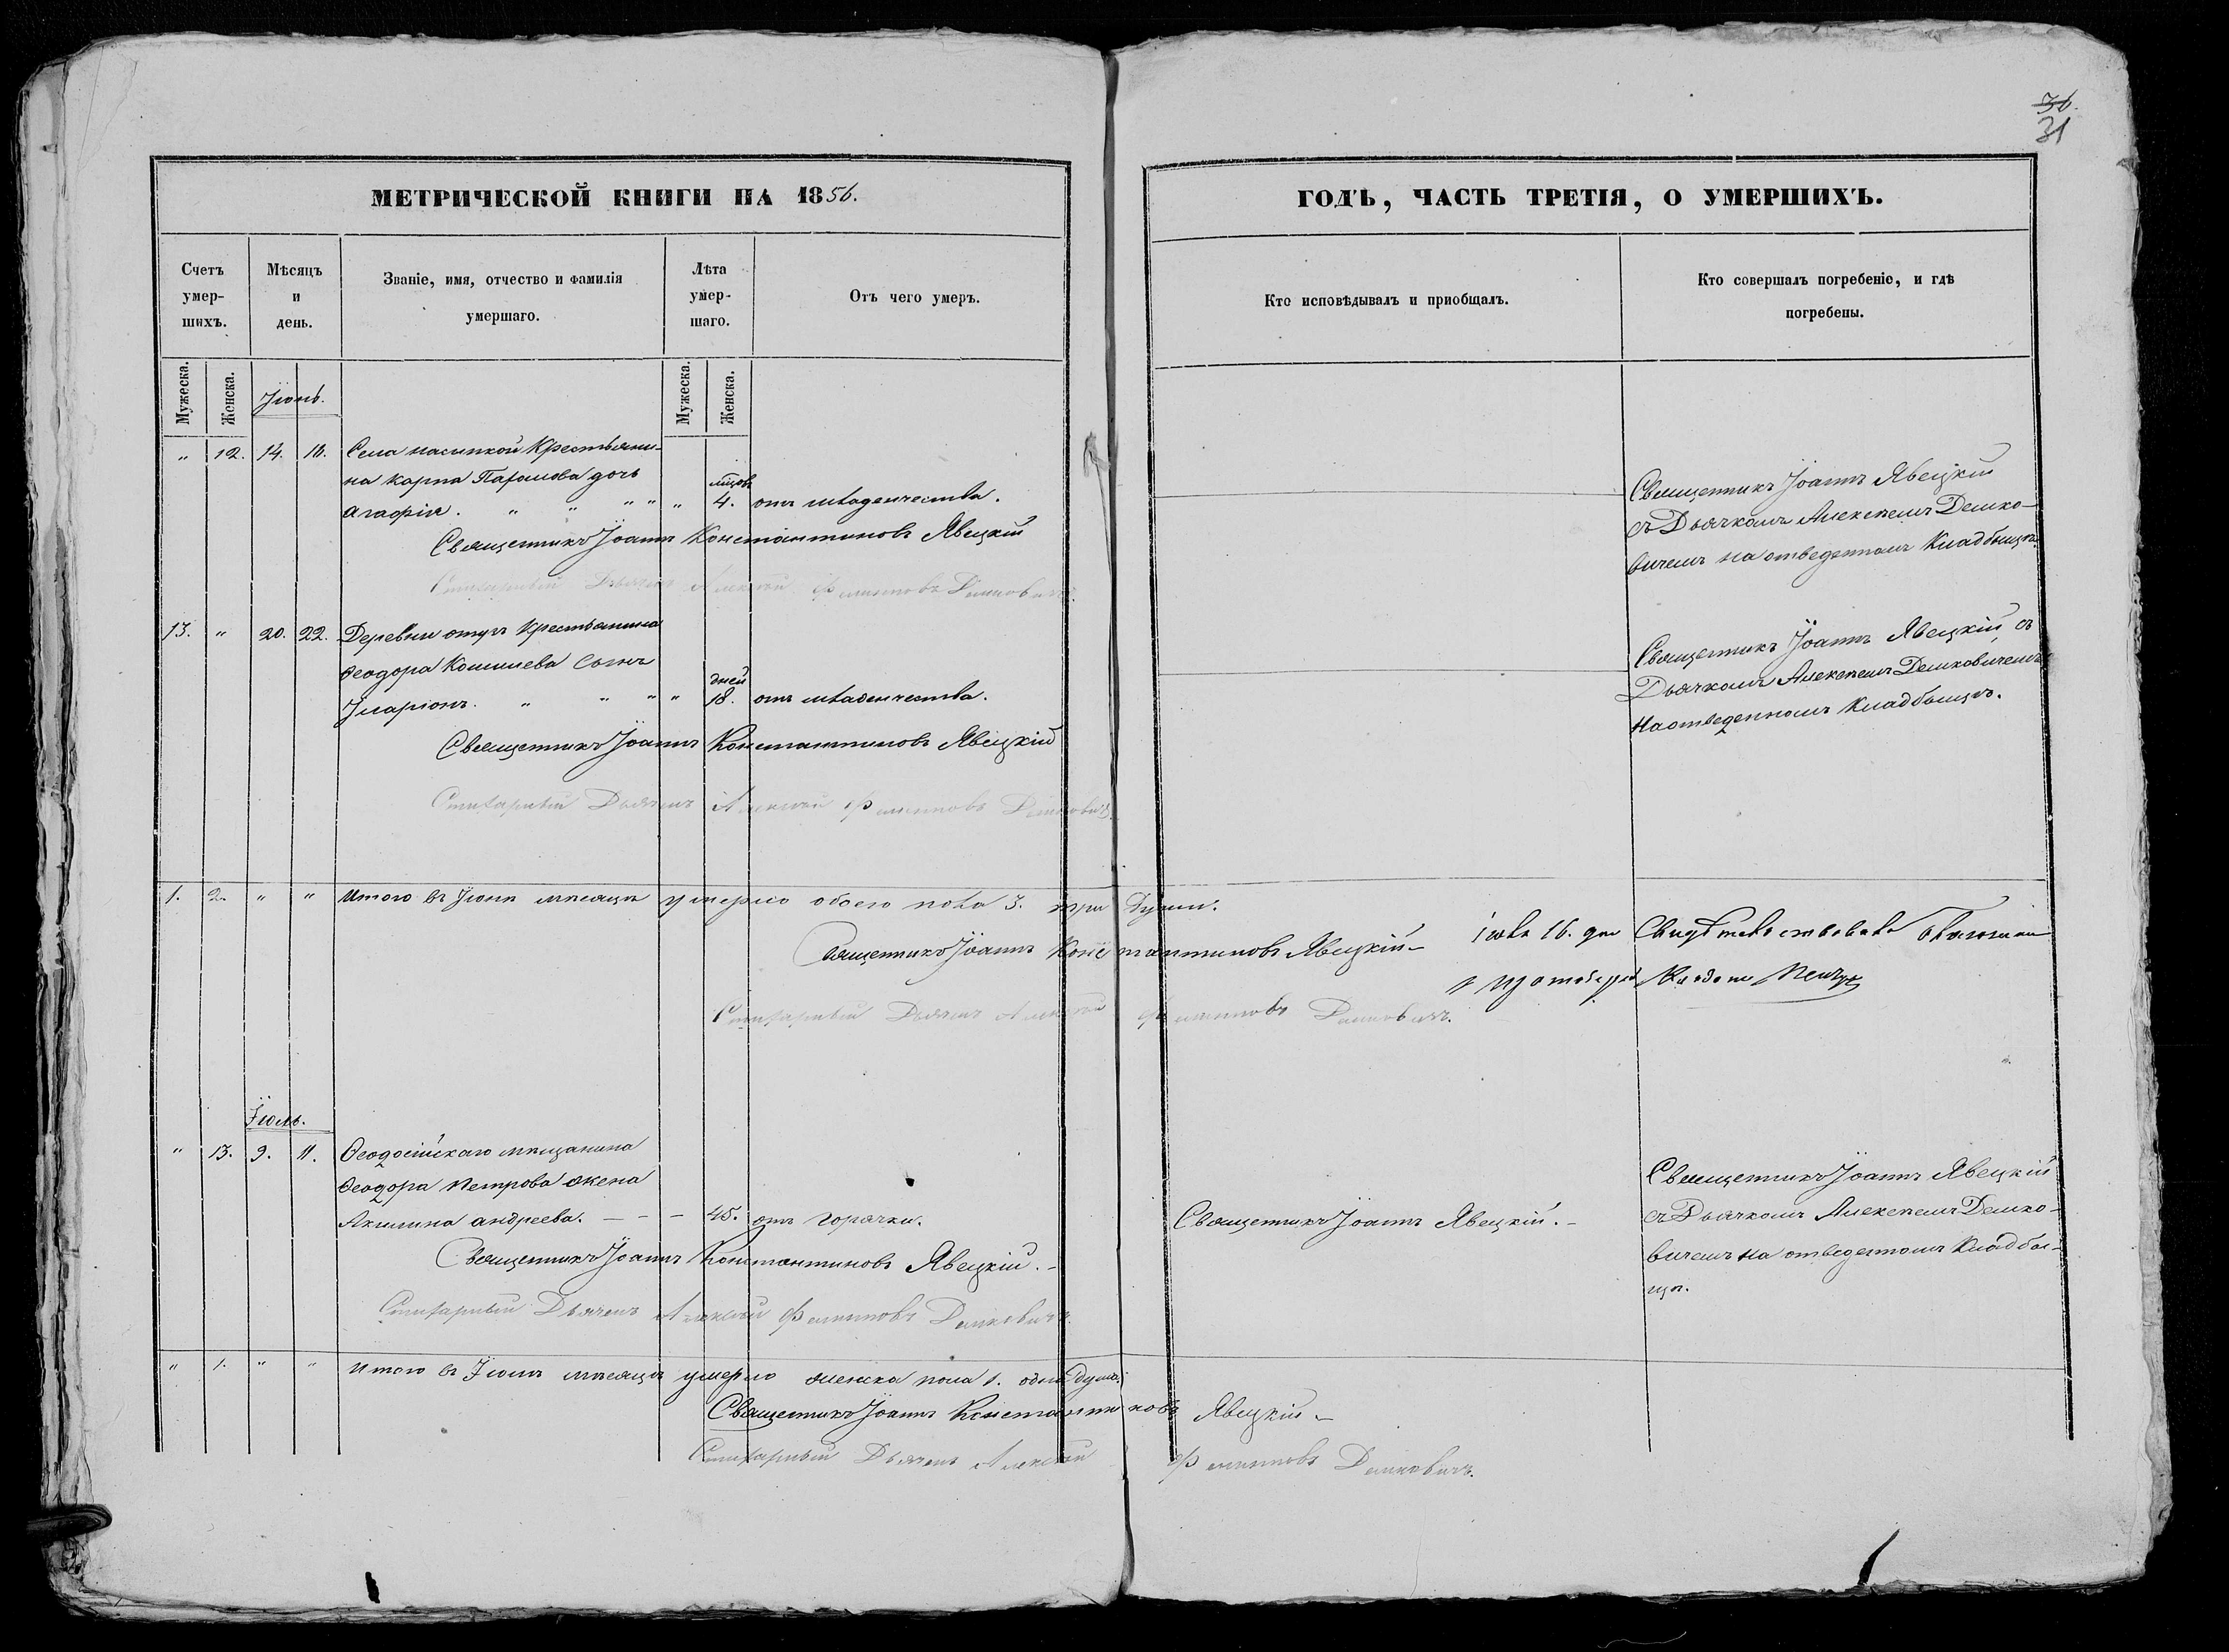 36.
31
МЕТРИЧЕСКОЙ КНИГИ НА 1856.
ГОДЪ, ЧАСТЬ ТРЕТІЯ, О УМЕРШИХЪ.
Счетъ умер-шихъ.
Мѣсяцъ и день.
Званіе, имя, отчество и фамилія умершаго.
Лѣта умер-шаго.
Отъ чего умеръ.
Кто исповѣдывалъ и приобщалъ.
Кто совершалъ погребеніе, и гдѣ погребены.
Мужеска. Женска.
Мужеска. Женска.
Іюнь.
" 12. 14. 16. Села Крестьяни-
на Карпа дочь
Агафія. " " " " " 4. отъ младенчества.
Священникъ Іоаннъ Константиновъ Явецкій
Стихарный Дьячекъ Алексѣй Филиповъ Демковичъ.
Священникъ Іоаннъ Явецкій
съ Дьячкомъ Алексѣемъ Демко-
вичемъ на отведенномъ Кладбищѣ.
13. " 20. 22. Деревни Крестьянина
Ѳеодора сынъ
дней
Иларіонъ. " " " " 18. отъ младенчества.
Священникъ Іоаннъ Константиновъ Явецкій
Стихарный Дьячекъ Алексѣй Филиповъ Демковичъ.
Священникъ Іоаннъ Явецкій, съ
Дьячкомъ Алексѣемъ Демковичемъ
на отведенномъ Кладбищѣ.
1. 2. " " Итого въ Іюнѣ мѣсяцѣ умерло обоего пола 3. три Души.
Священникъ Іоаннъ Константиновъ Явецкій
Стихарный Дьячекъ Алексѣй Филиповъ Демковичъ.
16. дня Свидѣтельствовалъ
Іюль.
" 13. 9. 11. Ѳеодосійскаго мѣщанина
Ѳеодора Петрова жена
Акилина Андреева. - - - 45. отъ горячки.
Священникъ Іоаннъ Константиновъ Явецкій.
Стихарный Дьячекъ Алексѣй Филиповъ Демковичъ.
Священникъ Іоаннъ Явецкій.
Священникъ Іоаннъ Явецкій
съ Дьячкомъ Алексѣемъ Демко-
вичемъ на отведенномъ Кладби-
щѣ.
" 1. " " Итого въ Іюлѣ мѣсяцѣ умерло женска пола 1. одна Душа.
Священникъ Іоаннъ Константиновъ Явецкій
Стихарный Дьячекъ Алексѣй Филиповъ Демковичъ.